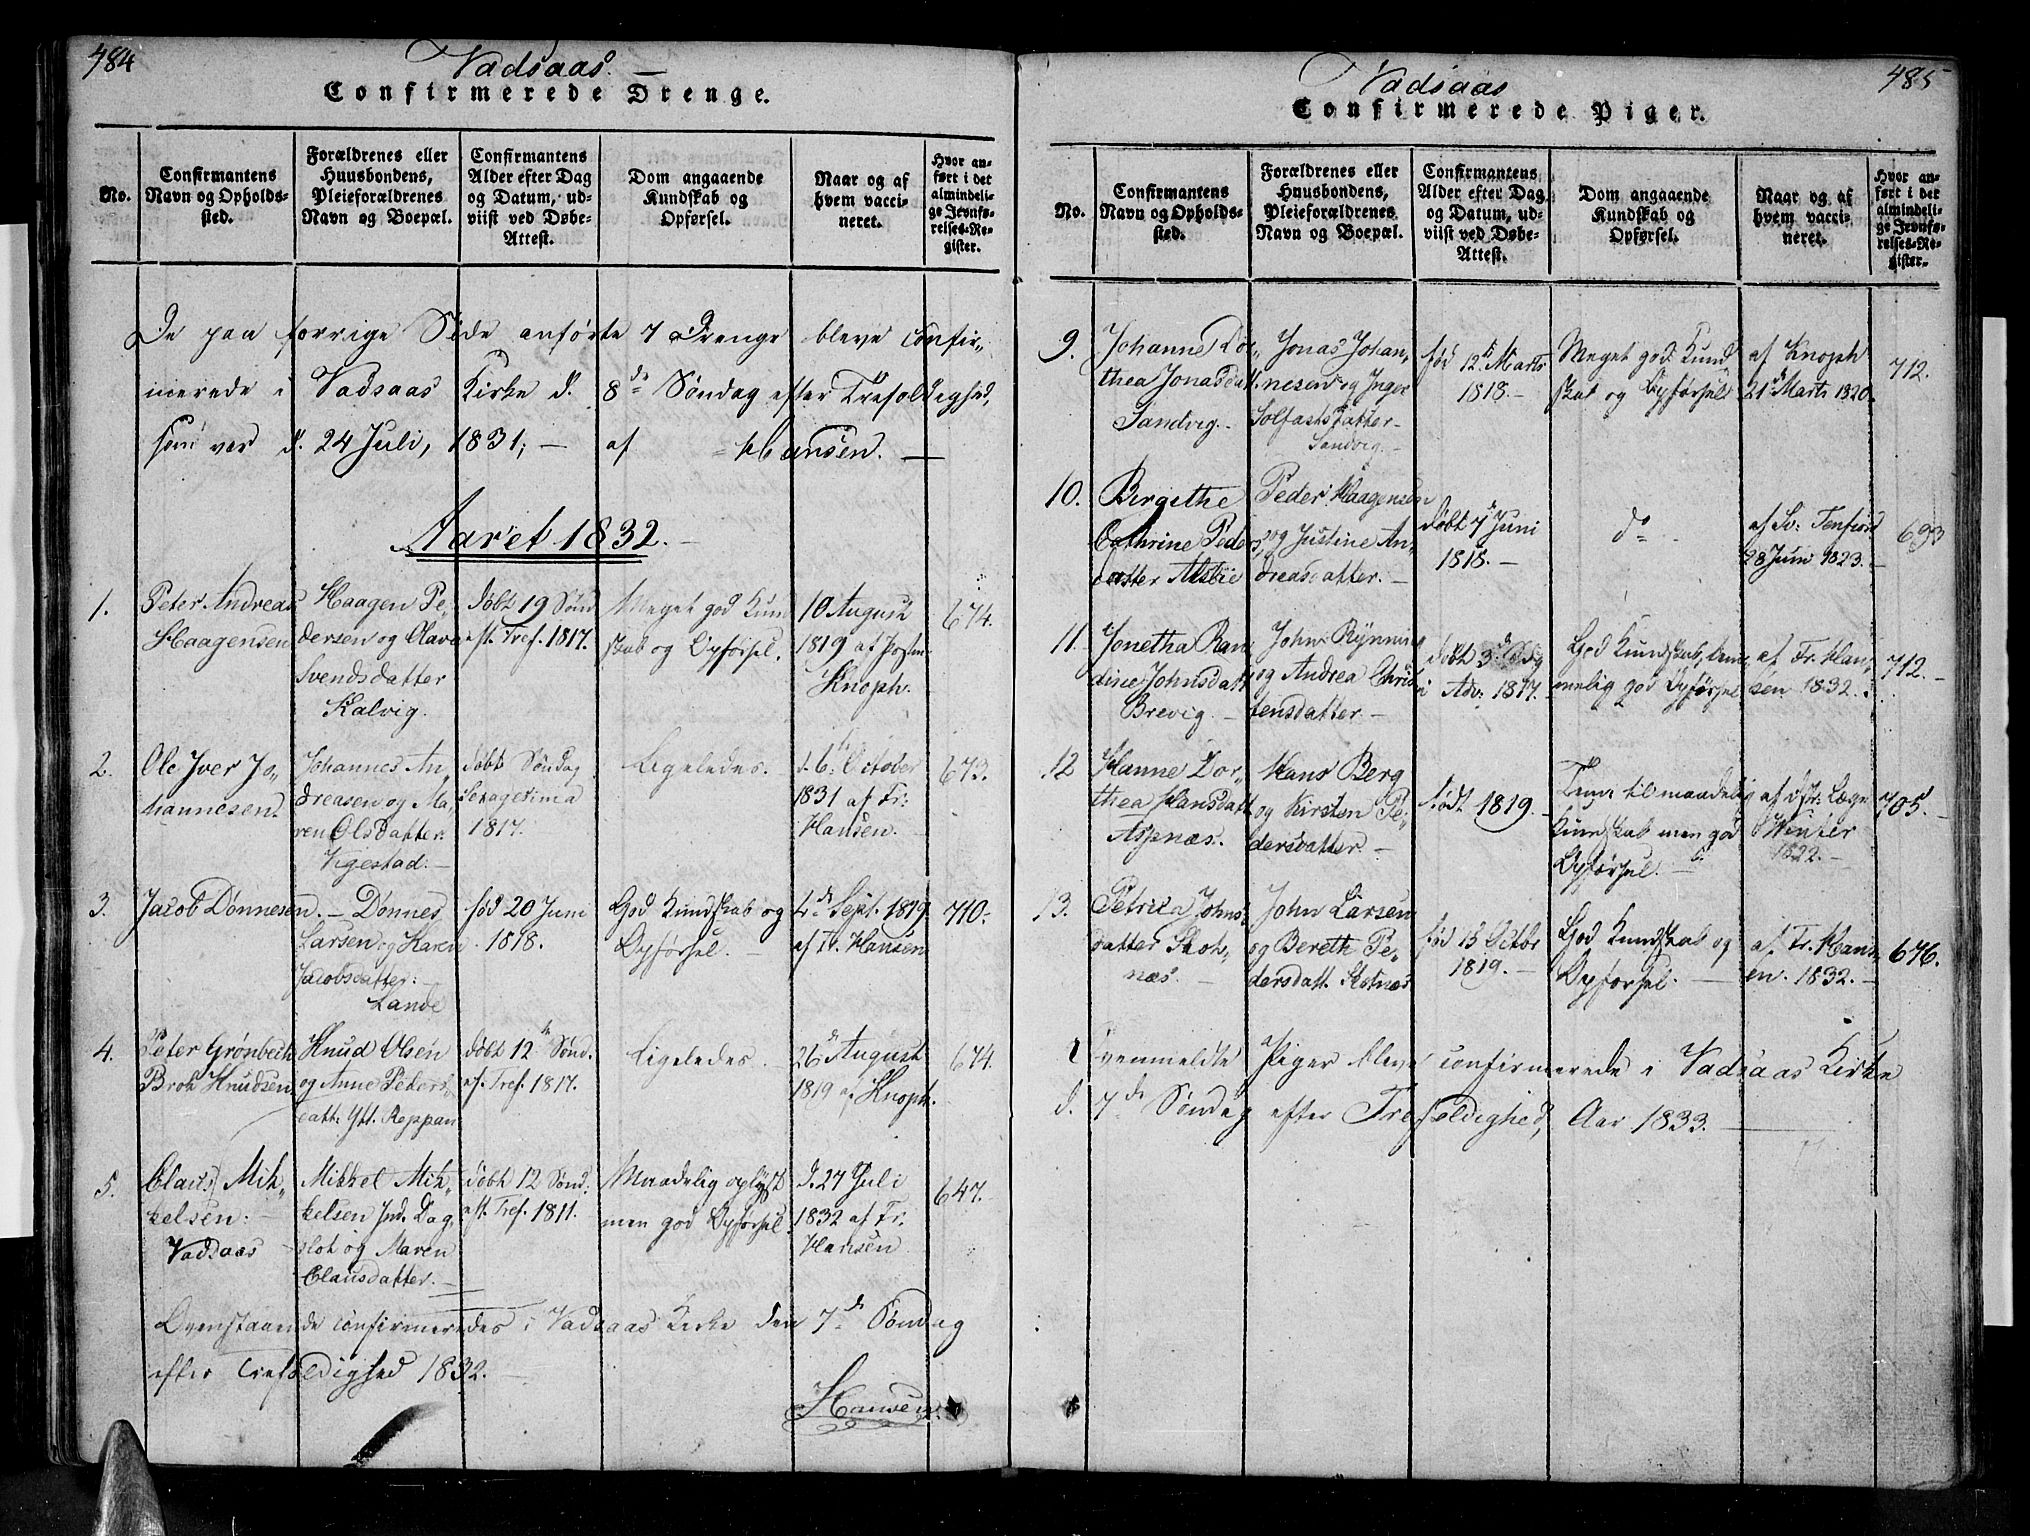 484
Vadsaas. —
Confirmerede Drenge.
No.
Confirmantens
Navn og Opholds-
sted.
Forældrenes eller
Huusbondens,
Pleieforældrenes
Navn og Boepæl.
Confirmantens
Alder efter Dag
og Datum, ud-
viist ved Døbe-
Attest.
Dom angaaende
Kundskab og
Opførsel.
Naar og af
hvem vacci-
neret.
Hvor an-
ført i det
almindeli-
ge Jevnfø-
relses-Re-
gister.
De paa forrige Side anførte 7 Drenge bleve confir„
merede i Vadsaas Kirke d. 8de Søndag efter Trefoldighed,
som var d. 24 Juli, 1831; — af Hansen. —
Aaret 1832. —
1.
Peter Andreas
Haagensen
Haagen Pe„
dersen og Olava
Svendsdatter
Kalvig.
døbt 19 Sønd
eft. Tref. 1817.
Meget god Kun
skab og Opførsel.
10 August
1819 af
Knoph.
674.
2.
Ole Iver Jo„
hannesen.
Johannes An„
dreasen og Ma„
ren Olsdatter.
Vigestad. —
døbt Søndag
Sexagesima
1817.
Ligeledes. —
d. 6. October
1831 af Fr:
Hansen. —
673.
3.
Jacob Dønnesen. —
Dønnes
Larsen og Karen
Jacobsdatter:
Lande
død 20 Juni
1818.
God Kundskab og
Opførsel. —
4de Sept. 1819
af Fr. Hansen
710.
4.
Peter Grønbech
Broh Knudsen
Knud Olsen
og Anne Peders„
datt. Ytt. Reppan
døbt 12te Sønd.
ef. Tref. 1817.
Ligeledes. —
26de August
1819 af Knoph.
674.
5.
Claus Mik„
kelsen:
Vadsaas
Mikkel Mik„
kelsen Ind. Dag„
slot og Maren
Clausdatter. —
døbt 12 Sønd.
eft. Tref. 1811.
Maadelig oplyst
men god Opførsel.
d. 27 Juli
1832 af Fr.
Hansen
647.
Ovenstaaende confirmeredes i Vadsaas Kirke den 7de Søndag
efter Trefoldighed 1832. —
Hansen.
485
Vadsaas
Confirmerede Piger.
No.
Confirmantens
Navn og Opholds-
sted.
Forældrenes eller
Huusbondens,
Pleieforældrenes
Navn og Boepæl.
Confirmantens
Alder efter Dag
og Datum, ud-
viist ved Døbe-
Attest.
Dom angaaende
Kundskab og
Opførsel.
Naar og af
hvem vacci-
neret.
Hvor an-
ført i det
almindeli-
ge Jevnfø-
relses-Re-
gister.
9.
Johanne Do„
thea Jonasdatt.
Sandvig. —
Jonas Johan„
nesen og Inger
Solfastsdatter —
Sandvig. —
fød 12te Marts
1818. —
Meget god Kund
skab og Opførsel
af Knoph
21de Marts 1820.
712.
10.
Birgithe
Cathrine Peders
datter Alsbie
Peder Haagensen
og Justine An„
dreasdatter. —
døbt 7de Juni
1818. —
do
af Sv: Tenfiord
28 Juni 1823. —
693
11.
Jonetha Ran
dine Johnsdatt
Brevig. —
John Rynning
og Andrea Chris
tensdatter. —
døbt 3de Sdg
i Adv: 1817.
God Kundskab, tem„
melig god Opførsel
af Fr. Han„
sen 1832.
712.
12
Hanne Dor„
thea Hansdatt
Aspnæs.
Hans Berg
og Kirsten Pe„
dersdatter. —
født 1819. —
maadelig
Kundskab men god
Opførsel. —
af dstr: Læge
Winter
1822. —
705.
13.
Petrica Johns
datter Skot„
næs.
John Larsen
og Bereth Pe„
dersdatt. Skotnæs
fød 13 Octbr
1819. —
God Kundskab og
Opførsel. —
af Fr. Hans„
en. 1832. —
676.
Ovenmeldte Piger bleve confirmerede i Vadsaas Kirke
d. 7de Søndag efter Trefoldighed, Aar 1833. —